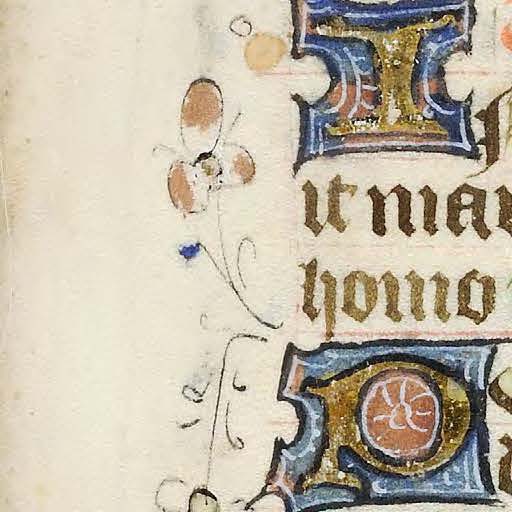 I
it mau
homo
P